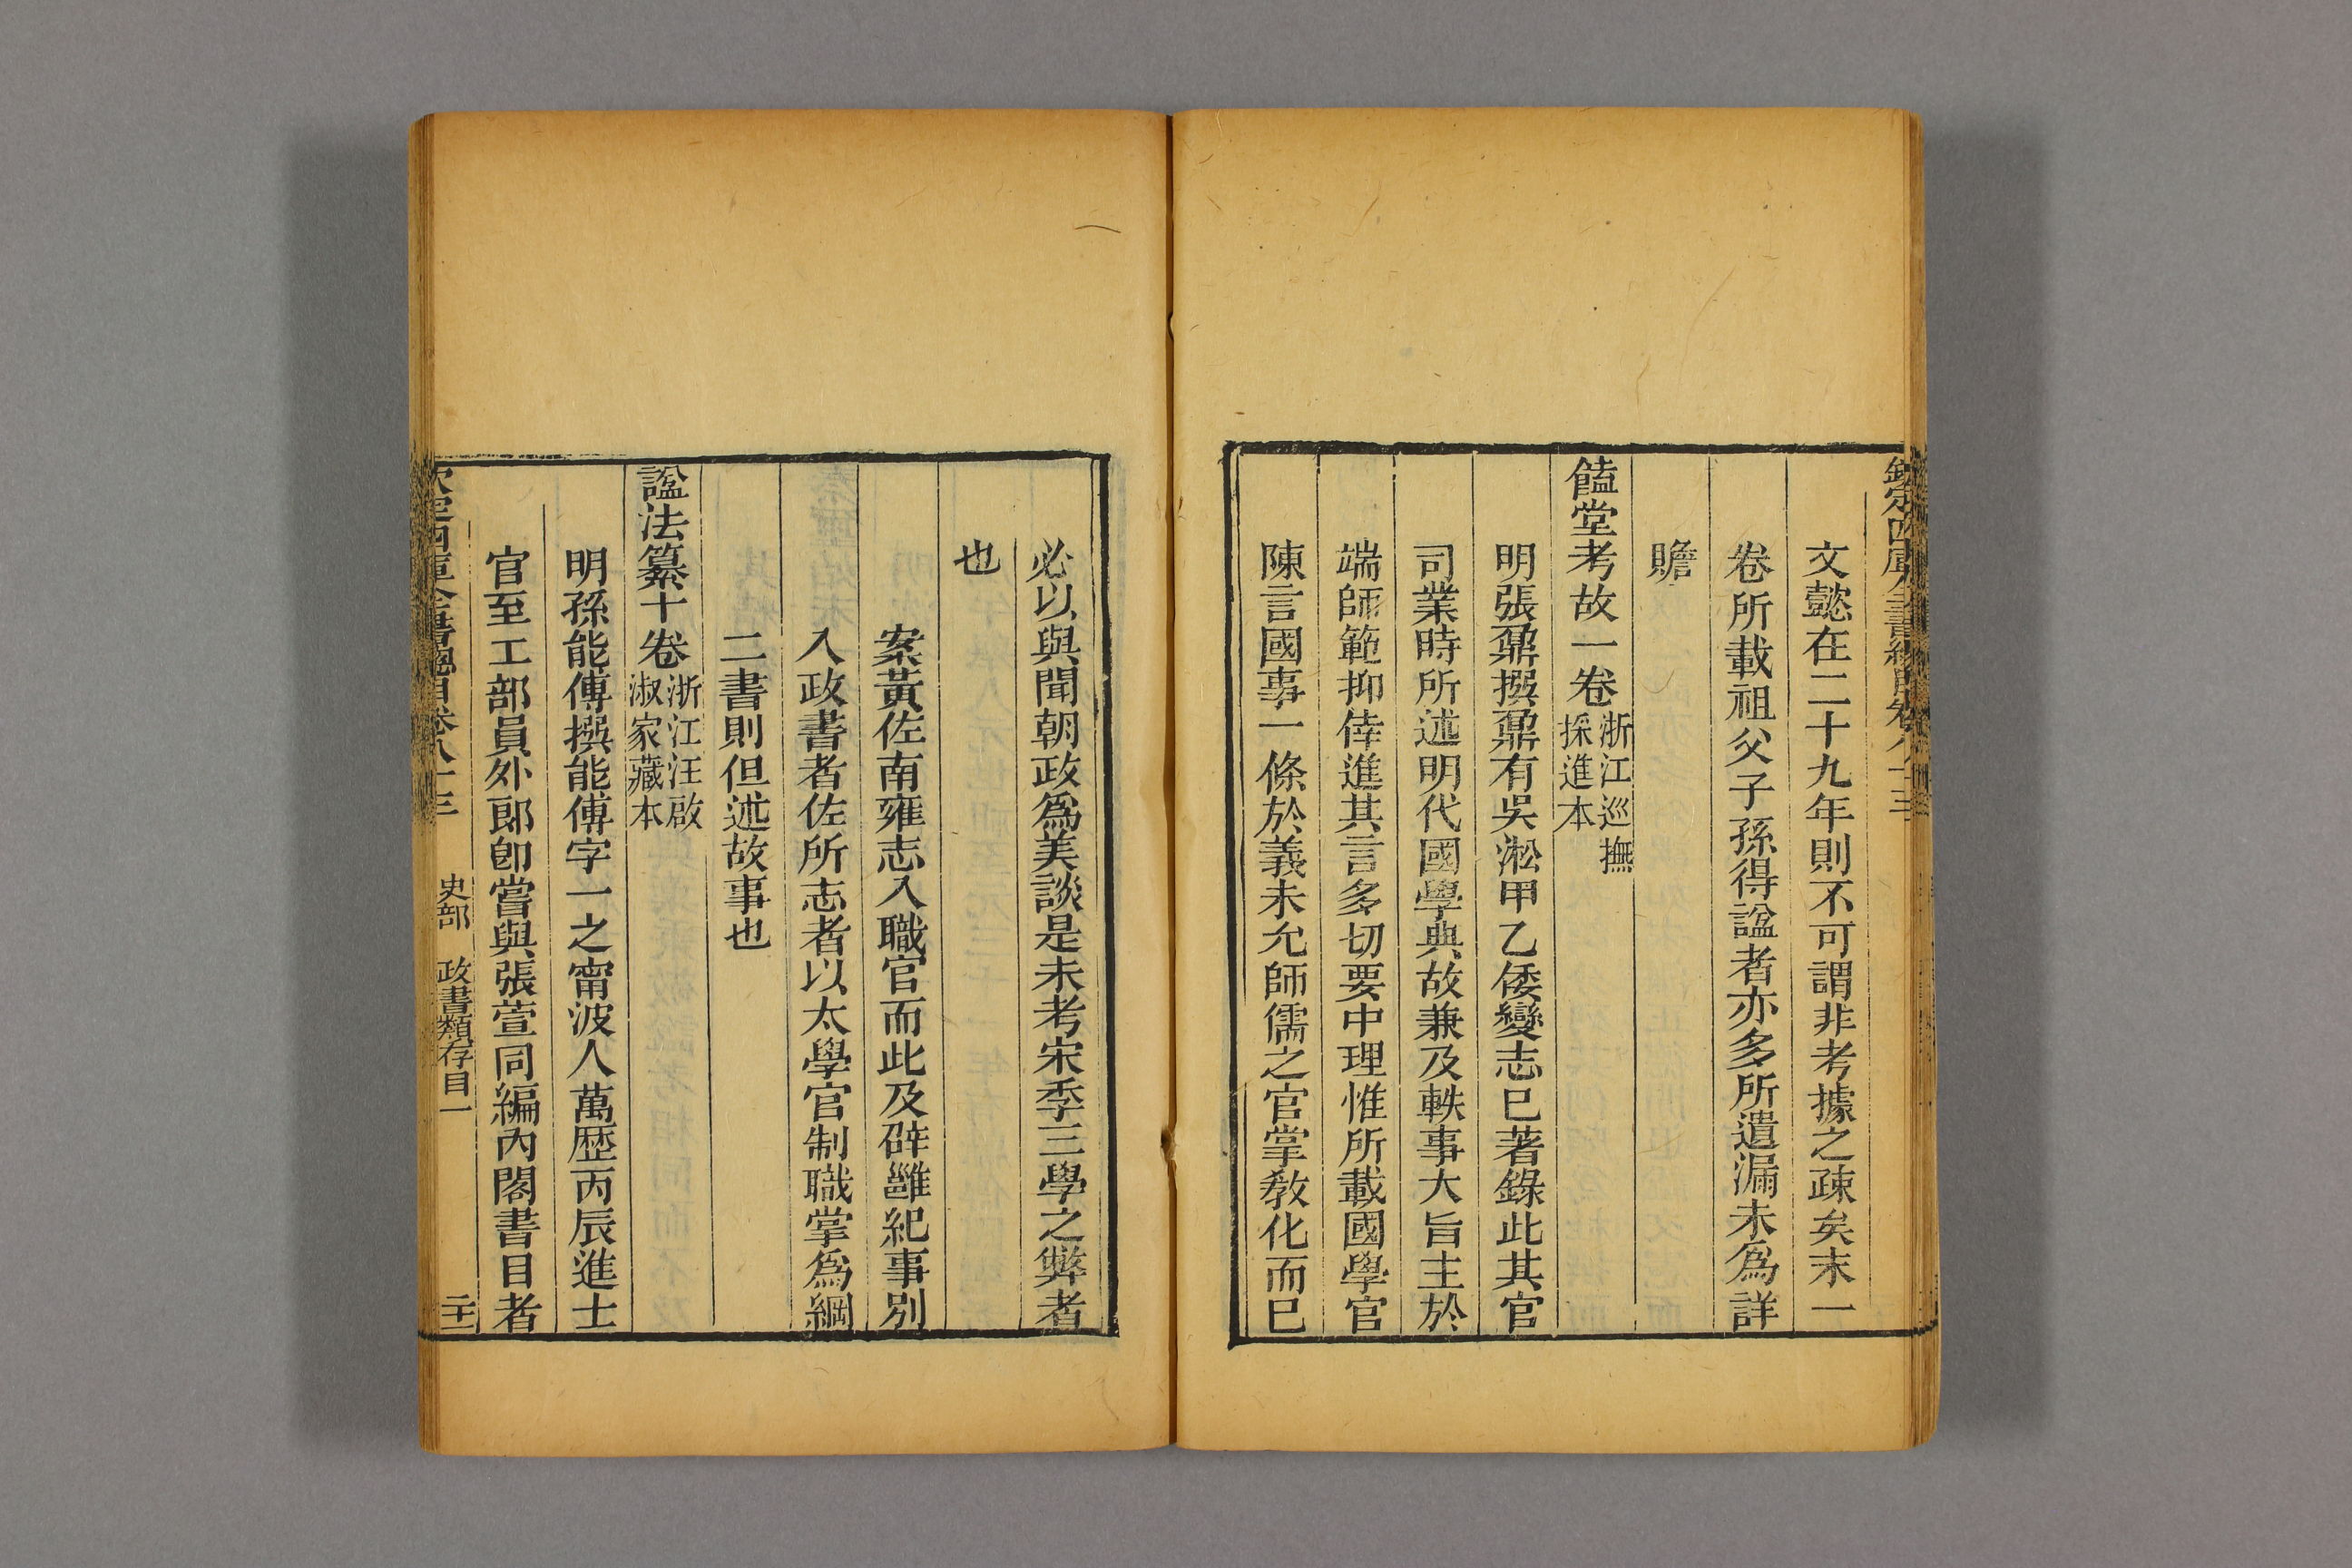 欽定四庫全書總目卷八十三
文懿在二十九年則不可謂非考據之疎矣末一
卷所載祖父子孫得諡者亦多所遺漏未爲詳
贍
饁堂考故一卷
浙江巡撫
採進本
明張鼐撰鼐有吳淞甲乙倭變志已著錄此其官
司業時所述明代國學典故兼及軼事大旨主於
端師範抑倖進其言多切要中理惟所載國學官
陳言國事一條於義未允師儒之官掌敎化而已
必以與聞朝政爲美談是未考宋季三學之弊者
也
案黃佐南雍志入職官而此及辟雝紀事別
入政書者佐所志者以太學官制職掌爲綱
二書則但述故事也
諡法纂十卷
浙江汪啟
淑家藏本
明孫能傅撰能傅字一之甯波人萬歷丙辰進士
官至工部員外郎卽嘗與張萱同編內閣書目者
欽定四庫全書總目卷八十三 史部 政書類存目一 二十一